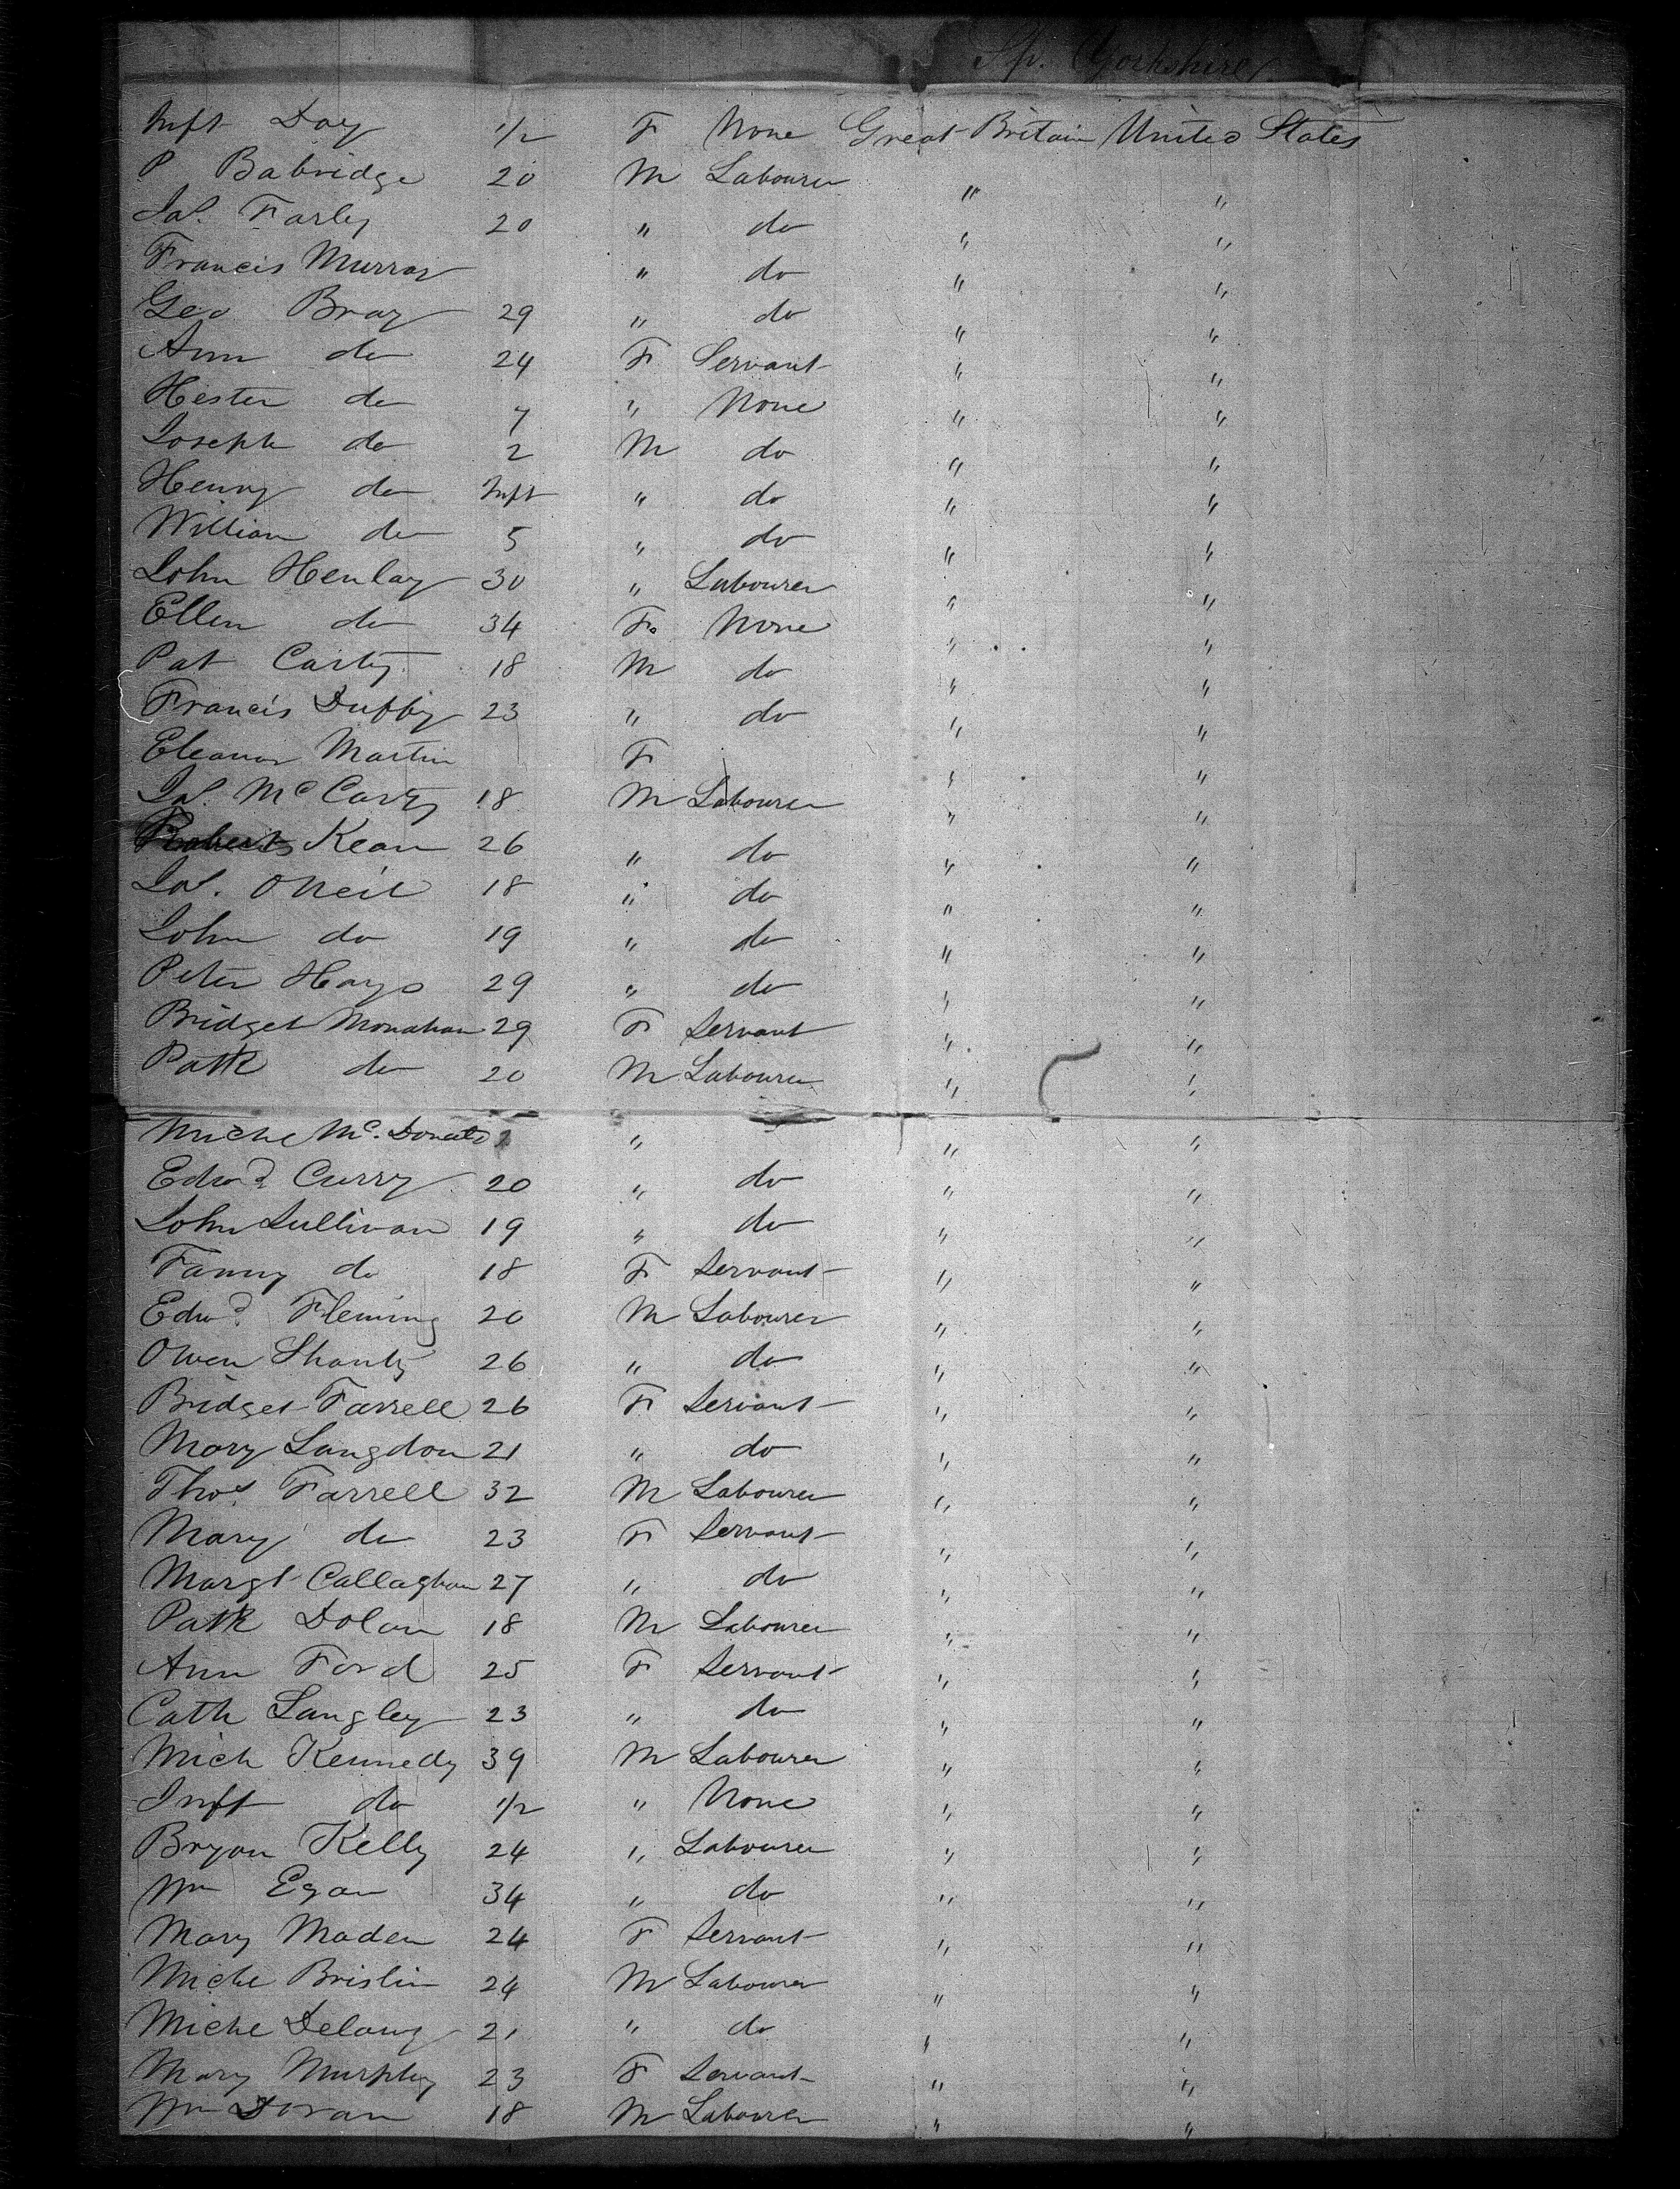 Sp. Yorkshire
Inft Day 1/2 F None Great Britain United States
P Babridge 20 M Labourer " "
Jas. Farley 20 " do " "
Francis Murray " do " "
Geo Bray 29 " do " "
Ann do 24 F Servant " "
Hester do 7 " None " "
Joseph do 2 M do " "
Henry do Inft " do " "
William do 5 " do " "
John Henlay 30 " Labourer " "
Ellen do 34 F. None " "
Pat Carty 18 M do " "
Francis Duffy 23 " do " "
Eleanor Martin F " "
Jas. McCarty 18 M Labourer " "
Kean 26 " do " "
Jas. ONeil 18 " do " "
John do 19 " do " "
Peter Hays 29 " do " "
Bridget Monahan 29 F Servant " "
Patk do 20 M Labourer " "
Miche Mc. Donald " " "
Edwd Curry 20 " do " "
John Sullivan 19 " do " "
Fanny do 18 F Servant " "
Edwd. Fleming 20 M Labourer " "
Owen Shanty 26 " do " "
Bridget Farrell 26 F Servant " "
Mary Langdon 21 " do " "
Thos. Farrell 32 M Labourer " "
Mary do 23 F Servant " "
Margt Callaghan 27 " do " "
Patk Dolan 18 M Labourer " "
Ann Ford 25 F Servant " "
Cath Langley 23 " do " "
Mich Kennedy 39 M Labourer " "
Inft do 1/2 " None " "
Bryan Kelly 24 " Labourer " "
Wm Egan 34 " do " "
Mary Maden 24 F Servant " "
Miche Brislin 24 M Labourer " "
Miche Delany 21 " do " "
Mary Murphy 23 F Servant " "
Wm Doran 18 M Labourer " "